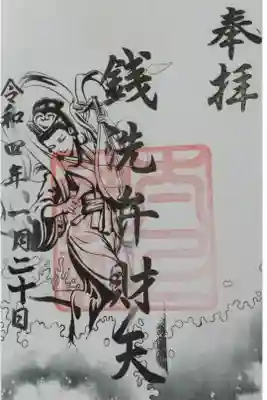 奉拝
銭洗弁財天
令和四年二月二十日